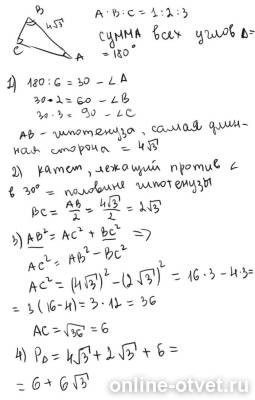 B
4√3
C
A
A : B : C = 1 : 2 : 3
сумма всех углов Δ =
= 180°
1) 180 : 6 = 30 - ∠A
30 • 2 = 60 - ∠B
30 · 3 = 90 - ∠C
AB - гипотенуза, самая длин-
ная сторона = 4√3
2) катет, лежащий против ∠
в 30° = половине гипотенузы
BC = AB/2 = 4√3/2 = 2√3
3) AB² = AC² + BC² =>
AC² = AB² - BC²
AC² = (4√3)² - (2√3)² = 16·3 - 4·3 =
= 3(16-4) = 3·12 = 36
AC = √36 = 6
4) PΔ = 4√3 + 2√3 + 6 =
= 6 + 6√3
online-otvet.ru